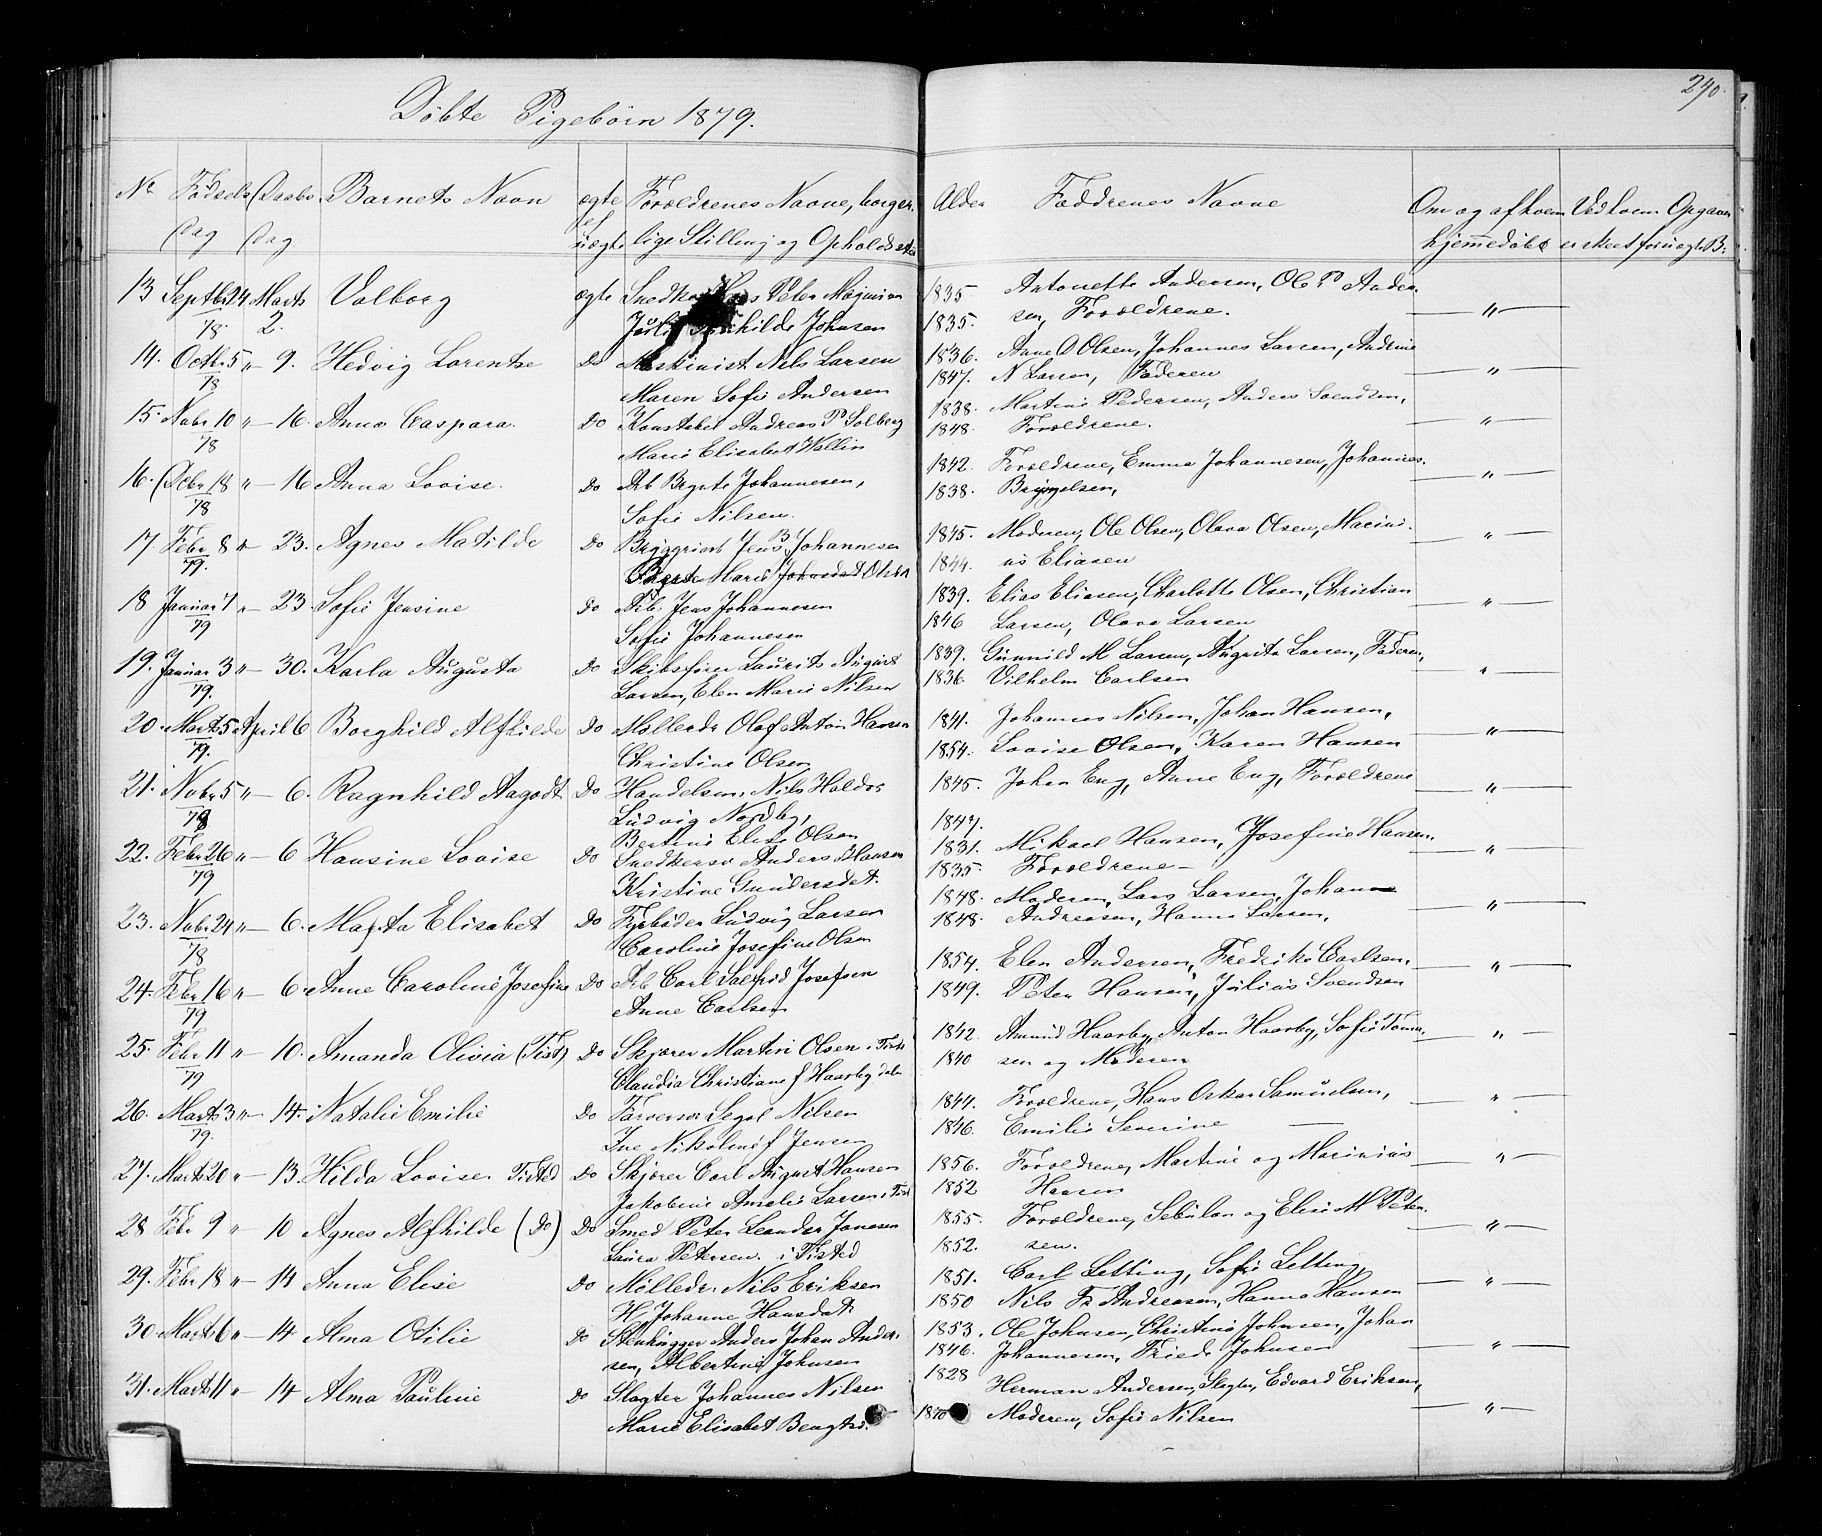 290.
Döbte Pigebörn 1879.
No Födsels Daabs Barnets Navn ægte Forældrenes Navne, borger- Alder Faddrenes Navne Om og af hvem Ved hvem Opgaven
dag dag. el uægte lige Stilling og Opholdssted hjemmedöbt er skeet for uægte B:
13 Septbr 24 Marts Valborg ægte Snedker Peter Magnus 1835. Antonette Andersen, Ole P Ander-
78. 2. Johnsen 1835. sen, Forældrene. — " —
14. Octbr 5 " 9. Hedvig Lorentse Do Maskinist Nils Larsen 1836. Anne O Olsen, Johannes Larsen, Andrine
78 Maren Sofie Andersen 1847. N Larsen, Faderen — " —
15. Novbr 10 " 16. Anna Caspara. Do Konstabel Andreas P Solberg 1838. Martine Pedersen, Anders Svendsen,
78 Marie Elisabet Wallin 1848. Forældrene. — " —
16. Decbr 18 " 16 Anna Lovise. Do Arb Bryte Johannesen, 1842. Forældrene, Emma Johannesen, Johannes
78 Sofie Nilsen. 1838. Bryngelsen, — " —
17 Febr 8 " 23. Agnes Matilde Do Bryggeriarb Jens B. Johannesen 1845. Moderen, Ole Olsen, Olava Olsen, Marini-
79. Marie Olsen 1844. us Eliasen — " —
18 Januar 7 " 23. Sofie Jensine Do Arb. Jens Johannesen 1839. Elias Eliasen, Charlotte Olsen, Christian
79 Sofie Johannesen 1846 Larsen, Olava Larsen — " —
19. Januar 3 " 30. Karla Augusta Do Skibsförer Laurits August 1839. Gunnild M Larsen, Augusta Larsen, Faderen,
79. Larsen, Elen Marie Nilsen 1836. Vilhelm Carlsen — " —
20. Marts 5 April 6 Borghild Alfhilde Do Mölledr Olaf Anton Hansen 1841. Johannes Nilsen, Johan Hansen,
79. Christine Olsen 1854. Lovise Olsen, Karen Hansen — " —
21. Novbr 5 " 6. Ragnhild Aagodt Do Handelsm. Nils Haldor 1845. Johan Eng, Anne Eng, Forældrene — " —
78 Ludvig Nordby, 1847.
Bertine Elise Olsen
22. Febr 26 " 6 Hansine Lovise Do Snedkersv Anders B Hansen 1831. Mikael Hansen, Josefine Hansen,
79 Kristine Gundersdat. 1835. Forældrene — — " —
23. Novbr 24 " 6. Marta Elisabet Do Fyrböder Ludvig Larsen 1848. Moderen, Lars Larsen, Johan
78 Caroline Josefine Olsen 1848. Andreasen, Hanna Larsen, — " —
24. Febr 16 " 6 Anne Caroline Josefine Do Arb Carl Salfrid Josefsen 1854. Elen Andersen, Fredrike Carlsen,
79 Anne Carlsen 1849. Peter Hansen, Julius Svendsen — " —
25. Febr 11 " 10. Amanda Olivia (Tist) Do Skjærer Martin Olsen i Tiste 1842. Amund Haarby, Anton Haarby, Sofie Toma-
79 Claudia Christiane f Haarby dalen 1840 sen og Moderen — " —
26. Marts 3 " 14. Natalie Emilie Do Farversv Segol Nilsen 1844. Forældrene, Hans Oskar Samuelsen,
79. Ine Nikoline f Jensen 1846. Emilie Severine — — " —
27. Marts 20 " 13. Hilda Lovise. Tisted Do Skjærer Carl August Hansen 1856. Forældrene, Martine og Marinius
Jakobine Amalie Larsen i Tist 1852 Hansen — " —
28 Febr 9 " 10 Agnes Alfhilde (Do) Do Smed Peter Leander Janesen 1855. Forældrene, Sebulon og Elise M Peter-
Laura Petersen. i Tisted 1852. sen. — " —
29. Febr 18 " 14 Anna Elise Do Mölledr. Nils Eriksen 1851. Carl Letting, Sofie Letting,
H Johanne Hansdat. 1850 Nils Fr Andreasen, Hanna Hansen — " —
30. Marts 6 " 14 Alma Otilie Do Stenhugger Anders Johan Ander- 1853. Ole Johnsen, Christine Johnsen, Johan
sen, Albertine Johnsen 1846. Johannesen, Friede Johnsen — " —
31. Marts 11 " 14 Alma Pauline Do Slagter Johannes Nilsen 1828 Herman Andersen, Slagter, Edvard Eriksen,
Marie Elisabet Bengtsd. Moderen, Sofie Nilsen — " —